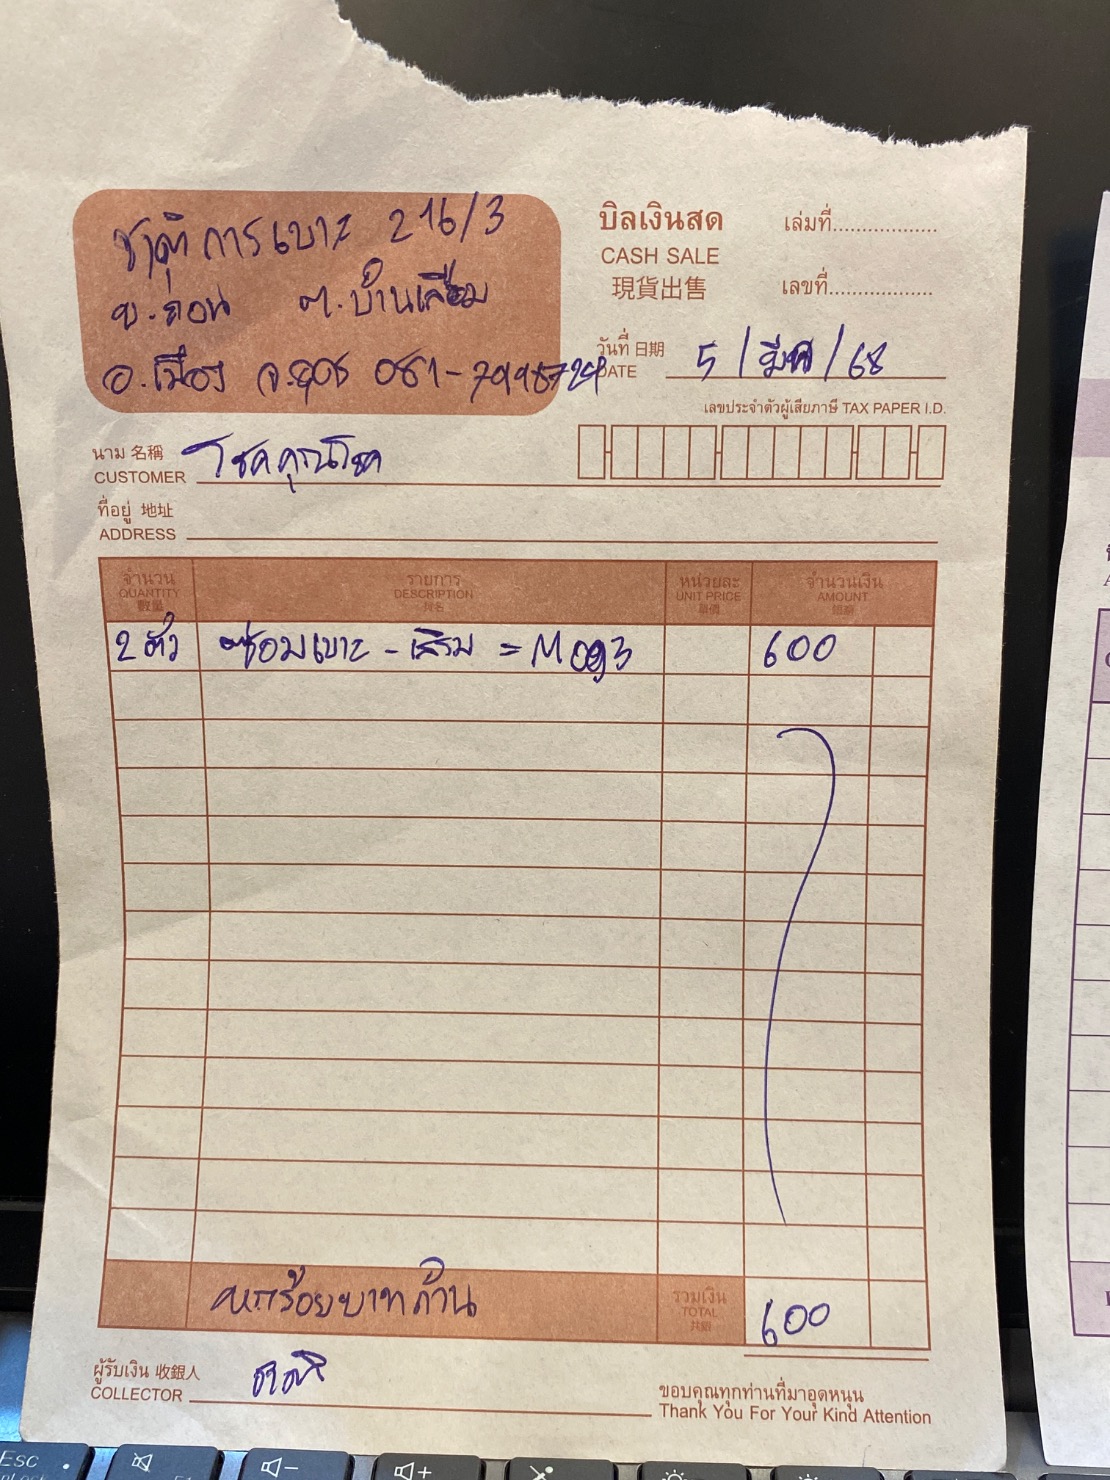 ชาติ การเบาะ 216/3
ต. บ้านเลื่อม
อ.เมือง
บิลเงินสด
CASH SALE
現貨出售
เล่มที่..................
เลขที่..................
วันที่ 日期
DATE
5 / มีค / 68
เลขประจำตัวผู้เสียภาษี TAX PAPER I.D.
นาม 名稱
CUSTOMER โชคคูณโชค
ที่อยู่ 地址
ADDRESS
จำนวน
QUANTITY
數量
รายการ
DESCRIPTION
หน่วยละ
UNIT PRICE
單價
จำนวนเงิน
AMOUNT
2 ตัว ซ่อมเบาะ - เสริม = 600
หกร้อยบาทถ้วน
รวมเงิน
TOTAL
600
ผู้รับเงิน 收銀人
COLLECTOR ชาติ
ขอบคุณทุกท่านที่มาอุดหนุน
Thank You For Your Kind Attention
Esc